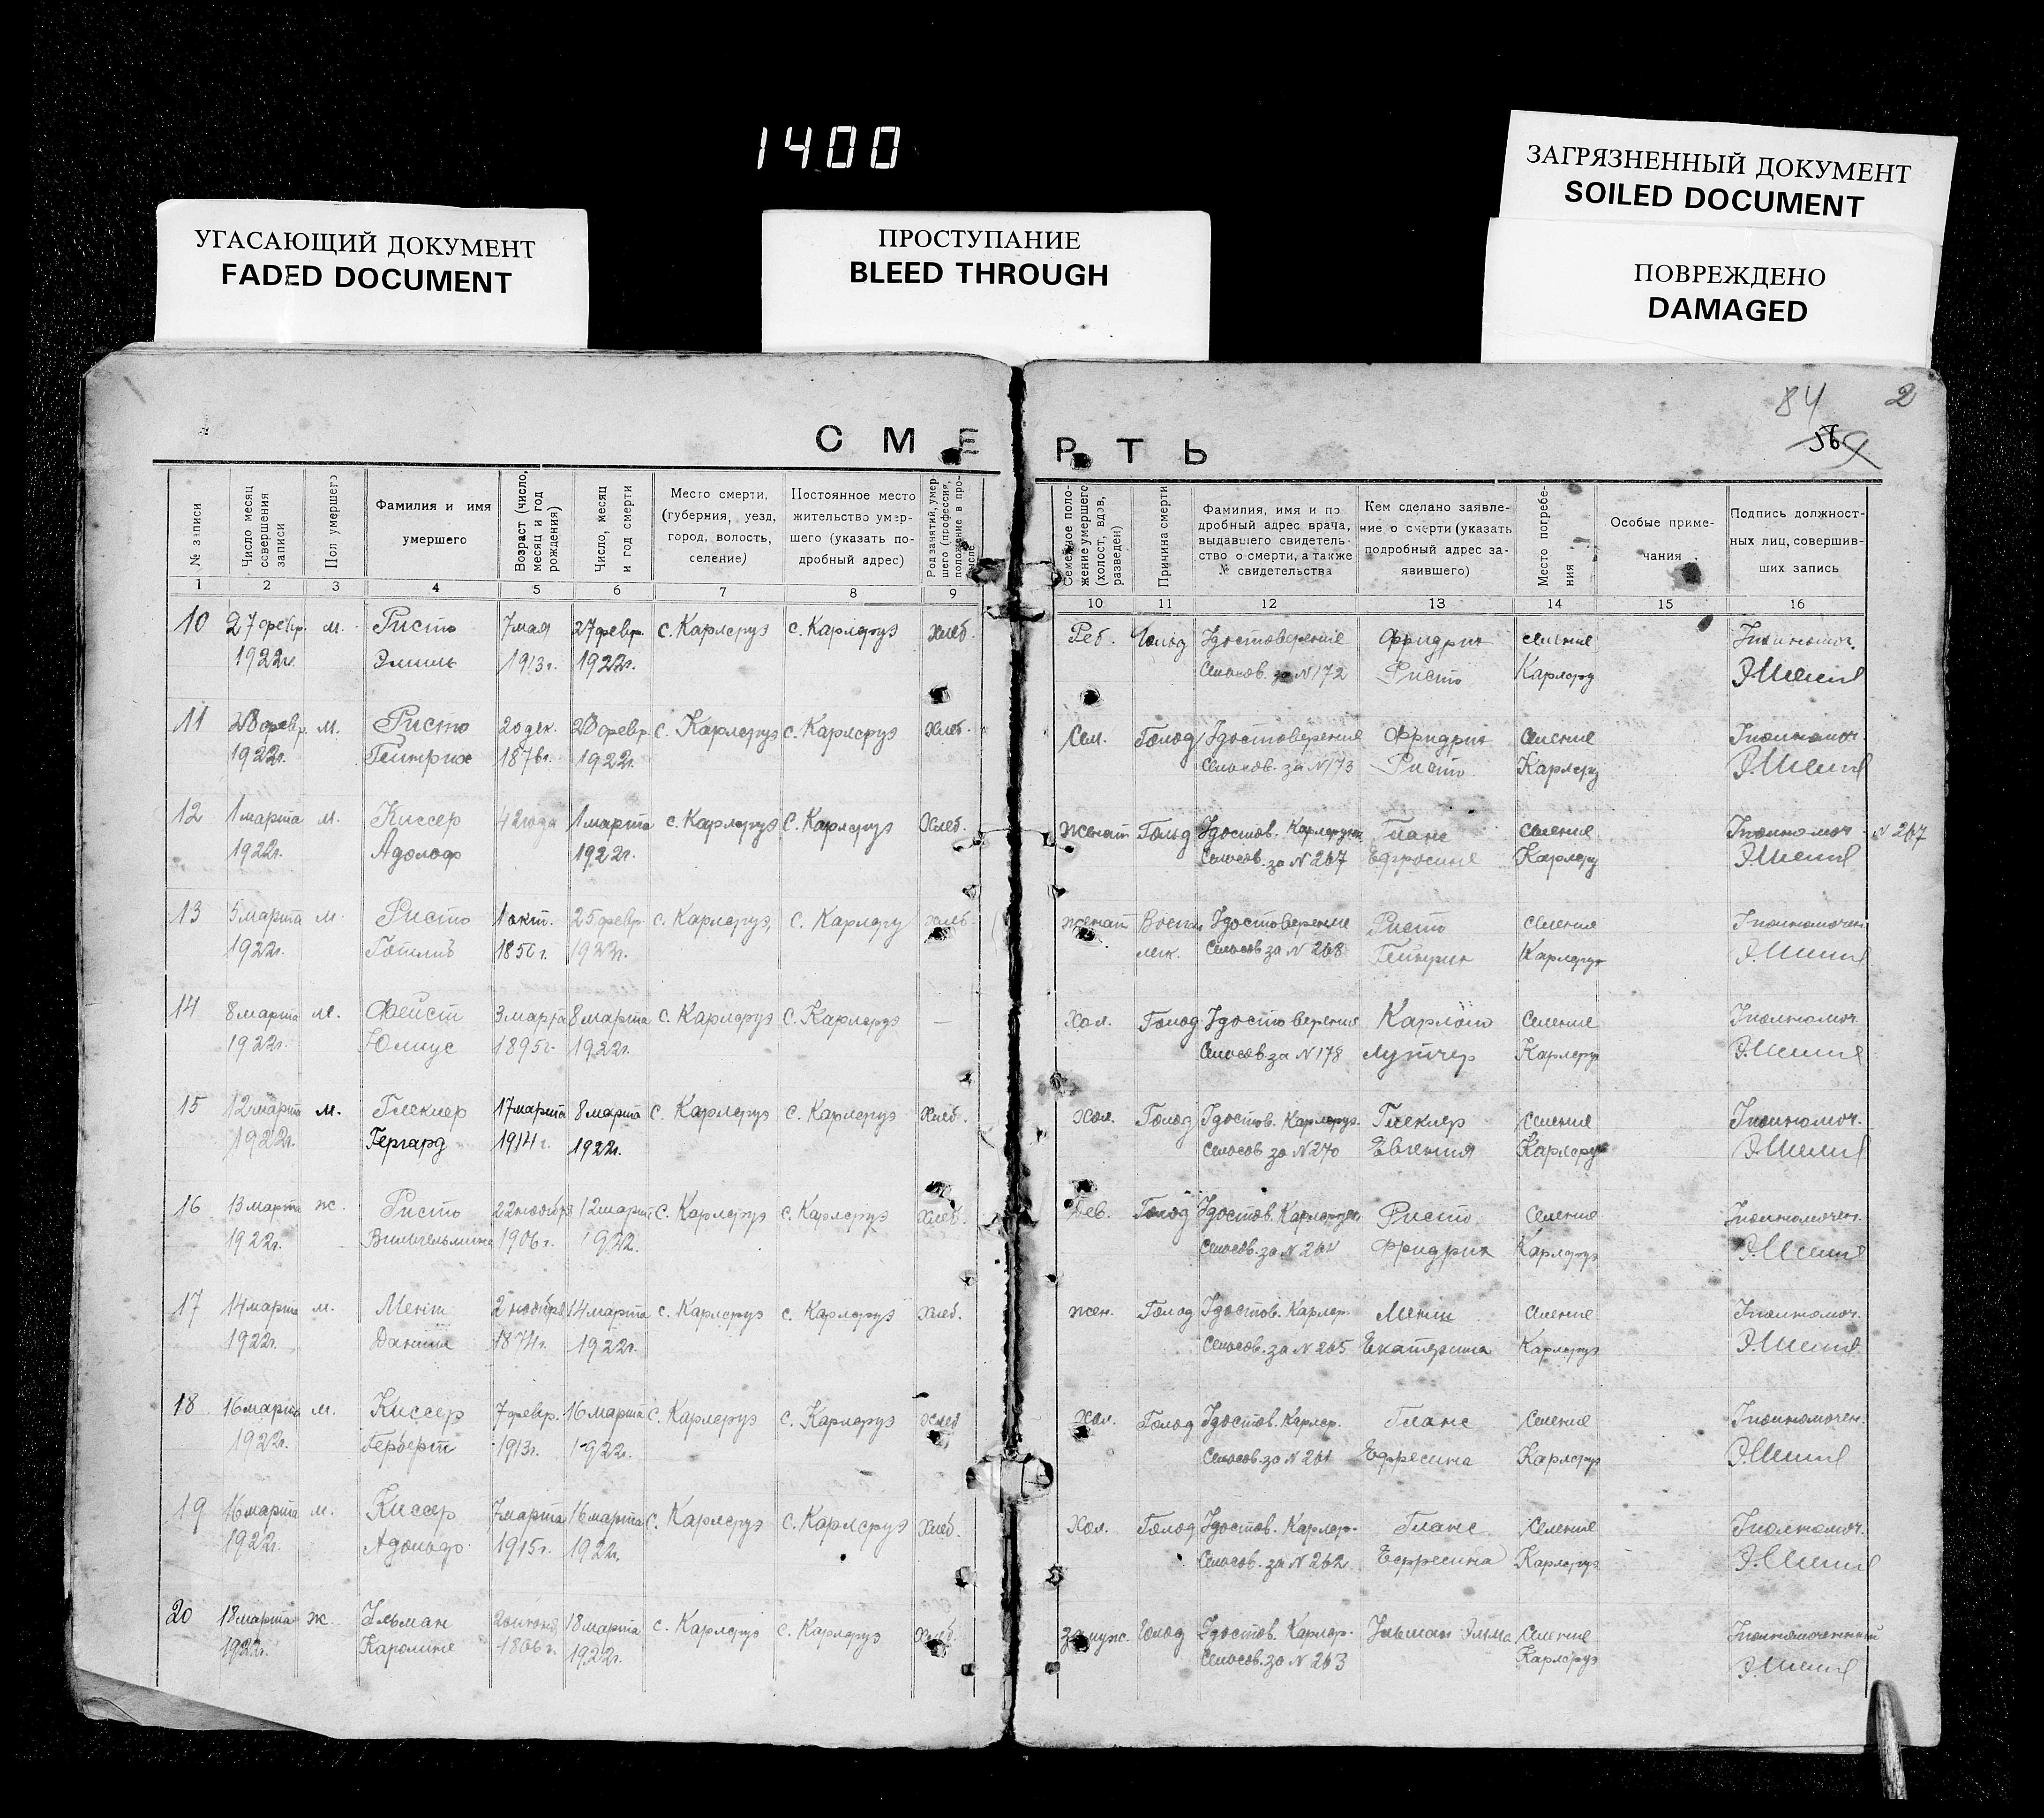 1400
УГАСАЮЩИЙ ДОКУМЕНТ
FADED DOCUMENT
ПРОСТУПАНИЕ
BLEED THROUGH
ЗАГРЯЗНЕННЫЙ ДОКУМЕНТ
SOILED DOCUMENT
ПОВРЕЖДЕНО
DAMAGED
84 2
56
СМЕРТЬ
№ записи
Число месяц совершения записи
Пол умершего
Фамилия и имя умершего
Возраст (число, месяц и год рождения)
Число, месяц и год смерти
Место смерти, (губерния, уезд, город, волость, селение)
Постоянное место жительство умершего (указать подробный адрес)
Род занятий, умершего (профессия, положение в промысле
Семейное положение умершего (холост, вдов, разведен)
Причина смерти
Фамилия, имя и подробный адрес врача, выдавшего свидетельство о смерти, а также № свидетельства
Кем сделано заявление о смерти (указать подробный адрес заявившего)
Место погребения
Особые примечания
Подпись должностных лиц, совершивших запись
1 2 3 4 5 6 7 8 9 10 11 12 13 14 15 16
10 27 февр. м. Ристо 7 мая 27 февр. с. Карлсруэ с. Карлсруэ Хлеб. Реб. Голод Удостоверение Фридрих селение Уполномоч.
1922г. Эмиль 1913г. 1922г. Сельсов. за N 172 Ристо Карлсруэ
11 28 февр. м. Ристо 20 дек. 28 февр. с. Карлсруэ с. Карлсруэ Хлеб. Сем. Голод Удостоверение Фридрих селение Уполномоч.
1922г. Гейнрих 1876г. 1922г. Сельсов. за N 173 Ристо Карлсруэ
12 1 марта м. Киссер 42 года 1 марта с. Карлсруэ с. Карлсруэ Хлеб. Женат Голод Удостов. Карлсруэ Гланс селение Уполномоч. N 267
1922г. Адольф 1922г. Сельсов. за N 267 Ефросине Карлсру
13 5 марта м. Ристо 1 окт. 25 февр. с. Карлсруэ, с. Карлсру Хлеб Женат Восп. Удостоверение Ристо селение Уполномочен
1922г. Готлиб 1850г. 1922г. лек. Сельсов за N 268 Гейнрих Карлсруэ
14 8 марта м. Фейст 3 марта 8 марта с. Карлсруэ с. Карлсруэ — Хол. Голод Удостоверение селение Уполномоч.
1922г. Юлиус 1895г. 1922г. Сельсов за N 178 Карлсруэ
15 12 марта м. Глеклер 17 марта 8 марта с. Карлсруэ с. Карлсруэ Хлеб. Хол. Голод Удостов. Карлсруэ. Глеклер селение Уполномоч.
1922г. Гергард 1914г. 1922г. Сельсов за N 270 Евгения Карлсруэ
16 13 марта ж. Ристо 22 ноября 12 марта с. Карлсруэ с. Карлсруэ Хлеб. Дев. Голод Удостов. Карлсруэ Ристо селение Уполномочен.
1922г. Вильгельмине 1906г. 1922. Сельсов. за N 264 Фридрих Карлсруэ
17 14 марта м. Мент 2 ноября 14 марта с. Карлсруэ с. Карлсруэ Хлеб. жен. Голод Удостов. Карлср. Мент селение Уполномоч.
1922г. Даниил 1874г. 1922г. Сельсов. за N 265 Екатерина Карлсруэ
18 16 марта м. Киссер 7 февр. 16 марта с. Карлсруэ с. Карлсруэ Хлеб Хол. Голод Удостов. Карлср. Гланс селение Уполномочен.
1922г. Герберт 1913г. 1922г. Сельсов. за N 261 Ефресина Карлсруэ
19 16 марта м. Киссер 7 марта 16 марта с. Карлсруэ с. Карлсруэ Хлеб. Хол. Голод Удостов. Карлср. Гланс селение Уполномоч.
1922г. Адольф 1915г. 1922г. Сельсов. за N 262 Ефресина Карлсруэ
20 18 марта ж. Ульман 18 марта с. Карлсруэ с. Карлсруэ Хлеб. Замуж. Голод Удостов. Карлср. Ульман Эмма селение Уполномоченный
1922г. Каролине 1922г. Сельсов. за N 263 Карлсруэ